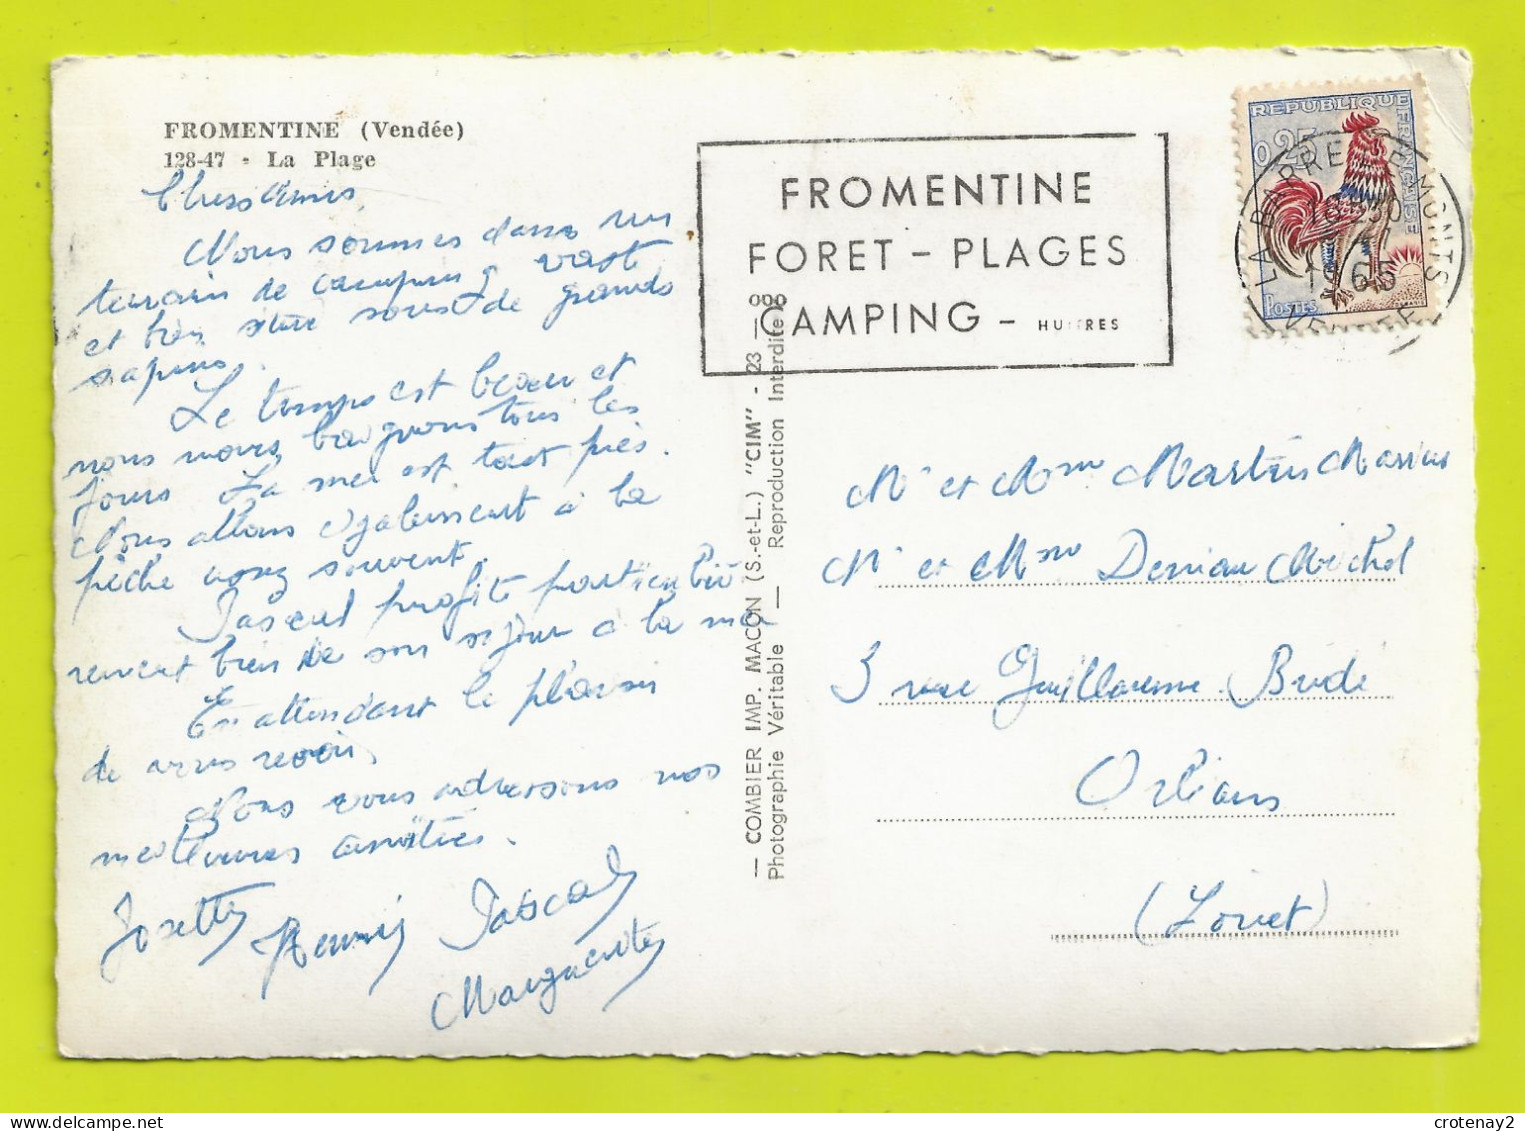 FROMENTINE (Vendée)
128-47 - La Plage
Chers Amis,
Nous sommes dans un
terrain de camping vaste
et bien situé sous de grands
sapins.
Le temps est beau et
nous nous baignons tous les
jours La mer est tout près.
Nous allons également à la
pêche assez souvent.
Pascal profite particuliè
rement bien de son séjour à la mer
En attendant le plaisir
de vous revoir,
Nous vous adressons nos
meilleures amitiés.
Josette Henri Pascal
Marguerite
— COMBIER IMP. MACON (S.-et-L.) "CIM" - 23 -
Photographie Véritable — Reproduction Interdite
FROMENTINE
FORET - PLAGES
CAMPING - HUITRES
REPUBLIQUE FRANÇAISE
0,25
POSTES
LA BARRE DE MONTS
1965
VENDEE
Mr et Mme Martin Marius
Mr et Mme Deniau Michel
3 rue Guillaume Budé
Orléans
(Loiret)
crotenay2